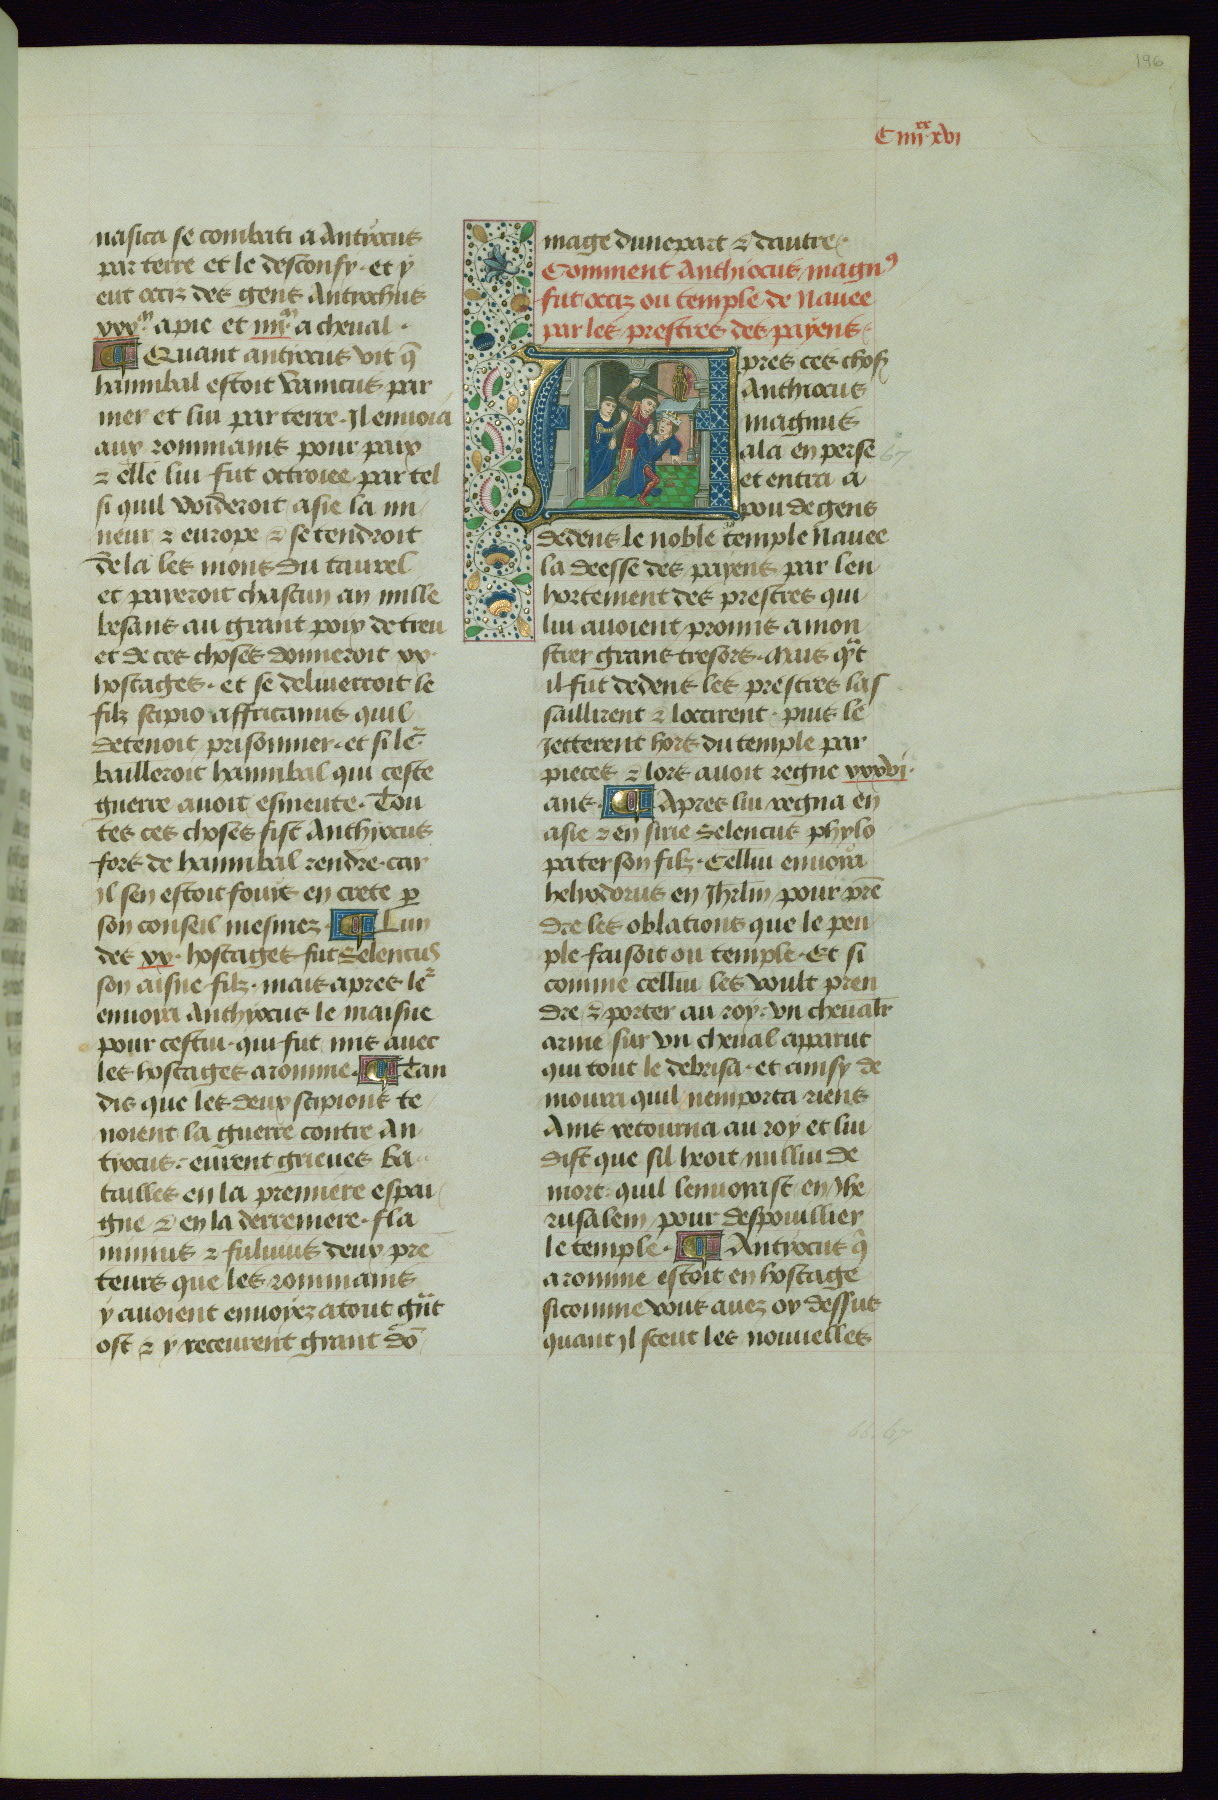 196
C iiii xx xvi
nasica se combati a Antiocus
par terre et le desconfy · et y
eut occiz des gens Antiochus
xxx m apie et iiii m a cheval ·
Quant antiocus vit q̄
hannibal estoit vaincus par
mer et lui par terre · Il enuoia
aux rommains pour paix
⁊ elle lui fut octroiee par tel
si quil voideroit asie la mi
neur ⁊ europe ⁊ se tendroit
de la les mons du taurel
et paieroit chascun an mille
besans au grant poix de treu
et de ces choses donneroit xx ·
hostages · et se deliuerroit le
filz scipio affricanus quil
detenoit prisonnier · et si le²
bailleroit hannibal qui ceste
guerre auoit esmeute · Tou
tes ces choses fist Anthiocus
fors de hannibal rendre · car
il sen estoit fouys en crete ꝑ
son conseil mesmez · Lun
des xx · hostages fut Seleucus
son aisne filz · mais apres le²
enuoia Anthiocus le maisne
pour cestui · qui fut mis auec
les hostages a romme · Tan
dis que les deux scipions te
noient la guerre contre An
tiocus : eurent grieues ba
tailles en la premiere espai
gne ⁊ en la derreniere · fla
minius ⁊ fuluius deux pre
teurs que les rommains
y auoient enuoyez a tout gnt
ost ⁊ y receurent grant do
mage dune part ⁊ dautre
Comment Anthiocus magn⁹
fut occiz ou temple de Nauee
par les prestres des payens
Apres ces chos
Anthiocus
magnus
ala en perse
et entra a
pou de gens
67
dedens le noble temple Nauee
la deesse des payens par len
hortement des prestres qui
lui auoient promis a mon
strer grans tresors · Mais qt
il fut dedens les prestres las
saillirent ⁊ loccirent · puis le
Jetterent hors du temple par
pieces ⁊ lors auoit regne xxxvi ·
ans · Apres lui regna en
asie ⁊ en sirie Seleucus phylo
pater son filz · Cellui enuoya
helyodorus en Jhrlm pour pre
dre les oblations que le peu
ple faisoit ou temple · Et si
comme cellui les voult pren
dre ⁊ porter au roy · vn cheualr
arme sur vn cheual apparut
qui tout le debrisa · et ainsy de
moura quil nemporta riens
Ains retourna au roy et lui
dist que sil heoit nullui de
mort · quil lenuoiast en Jhe
rusalem pour despouillier
le temple · Antiocus q̄
a romme estoit en hostage
sicomme vous auez oy dessus
quant il sceut les nouuelles
66. 67